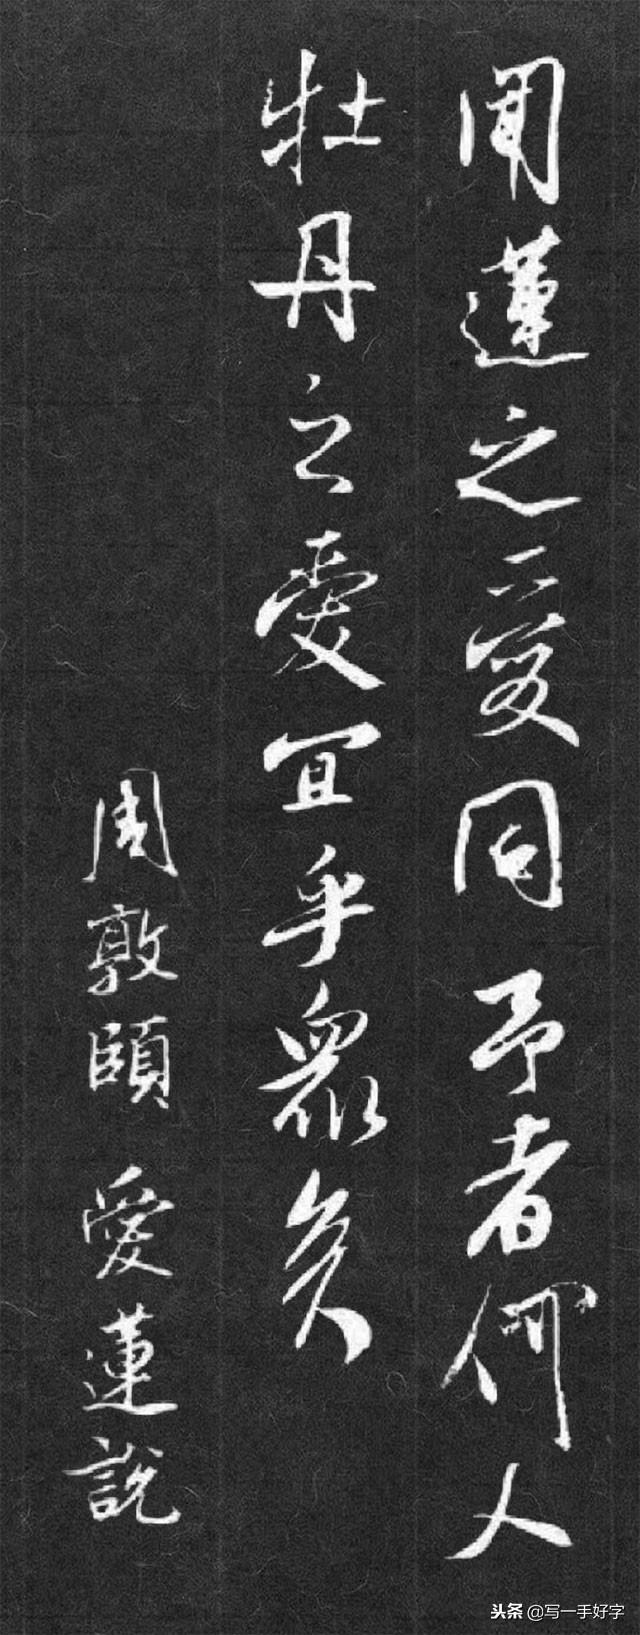 聞蓮之愛同予者何人
牡丹之愛宜乎眾矣
周敦頤 愛蓮說
头条 @写一手好字